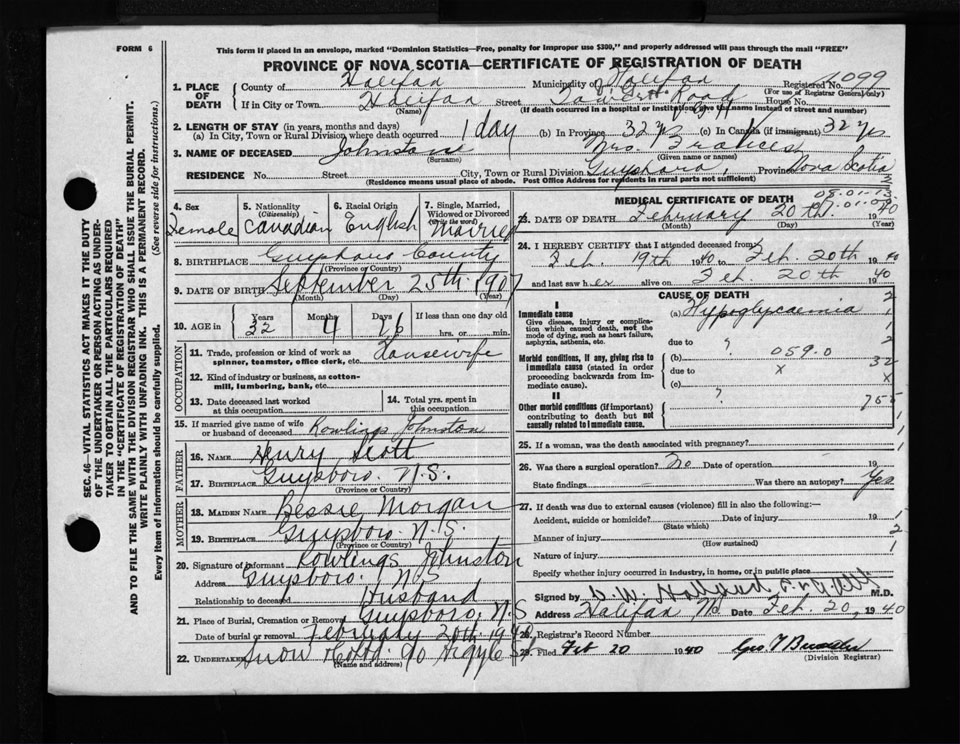 FORM 6
This form if placed in an envelope, marked "Dominion Statistics—Free, penalty for improper use $300," and properly addressed will pass through the mail "FREE"
PROVINCE OF NOVA SCOTIA—CERTIFICATE OF REGISTRATION OF DEATH
SEC. 46—VITAL STATISTICS ACT MAKES IT THE DUTY
OF THE UNDERTAKER OR PERSON ACTING AS UNDER-
TAKER TO OBTAIN ALL THE PARTICULARS REQUIRED
IN THE "CERTIFICATE OF REGISTRATION OF DEATH"
AND TO FILE THE SAME WITH THE DIVISION REGISTRAR WHO SHALL ISSUE THE BURIAL PERMIT.
WRITE PLAINLY WITH UNFADING INK. THIS IS A PERMANENT RECORD.
Every item of Information should be carefully supplied. (See reverse side for instructions.)
1. PLACE OF DEATH County of Halifax Municipality of Halifax Registered No. 1099
(For use of Registrar General only)
If in City or Town Halifax Street Road House No.
(Name) (If death occurred in a hospital or institution, give the name instead of street and number)
2. LENGTH OF STAY (in years, months and days)
(a) In City, Town or Rural Division where death occurred 1 day (b) In Province 32 yrs (c) In Canada (if immigrant) 32 yrs
3. NAME OF DECEASED Johnstone Mrs. Frances
(Surname) (Given name or names)
RESIDENCE No. Street City, Town or Rural Division Guysboro, Province Nova Scotia
(Residence means usual place of abode. Post Office Address for residents in rural parts not sufficient)
4. Sex Female
5. Nationality (Citizenship) Canadian
6. Racial Origin English
7. Single, Married, Widowed or Divorced (Write the word) Married
8. BIRTHPLACE Guysboro County
(Province or County)
9. DATE OF BIRTH September 25th 1907
(Month) (Day) (Year)
10. AGE in Years 32 Months 4 Days 26 If less than one day old hrs. or min.
OCCUPATION
11. Trade, profession or kind of work as spinner, teamster, office clerk, etc. Housewife
12. Kind of industry or business, as cotton-mill, lumbering, bank, etc.
13. Date deceased last worked at this occupation
14. Total yrs. spent in this occupation
15. If married give name of wife or husband of deceased Rowlings Johnston
FATHER
16. NAME Henry Scott
17. BIRTHPLACE Guysboro N.S.
(Province or Country)
MOTHER
18. MAIDEN NAME Bessie Morgan
19. BIRTHPLACE Guysboro N.S.
(Province or Country)
20. Signature of Informant Rowlings Johnston
Address Guysboro. N.S
Relationship to deceased Husband
21. Place of Burial, Cremation or Removal Guysboro, N.S
Date of burial or removal February 20th. 1940
22. UNDERTAKER Snow 90 Argyle St
(Name and address)
MEDICAL CERTIFICATE OF DEATH
23. DATE OF DEATH February 20th. 1940
(Month) (Day)
24. I HEREBY CERTIFY that I attended deceased from
Feb. 19th 1940 to Feb. 20th 1940
and last saw her alive on Feb. 20th 1940
CAUSE OF DEATH
I
Immediate cause
Give disease, injury or complication which caused death, not the mode of dying, such as heart failure, asphyxia, asthenia, etc.
(a) Hypoglycaemia
due to ?
Morbid conditions, if any, giving rise to immediate cause (stated in order proceeding backwards from immediate cause).
(b) 059.0
due to x
(c)
II
Other morbid conditions (if important) contributing to death but not causally related to Immediate cause.
?
755
25. If a woman, was the death associated with pregnancy?
26. Was there a surgical operation? No Date of operation 19
State findings Was there an autopsy? Yes
27. If death was due to external causes (violence) fill in also the following:—
Accident, suicide or homicide? Date of injury 19
(State which)
Manner of injury
(How sustained)
Nature of injury
Specify whether injury occurred in industry, in home, or in public place
Signed by M.D.
Address Halifax NS Date Feb. 20, 1940
28. Registrar's Record Number
29. Filed Feb 20 1940 Geo.
(Division Registrar)